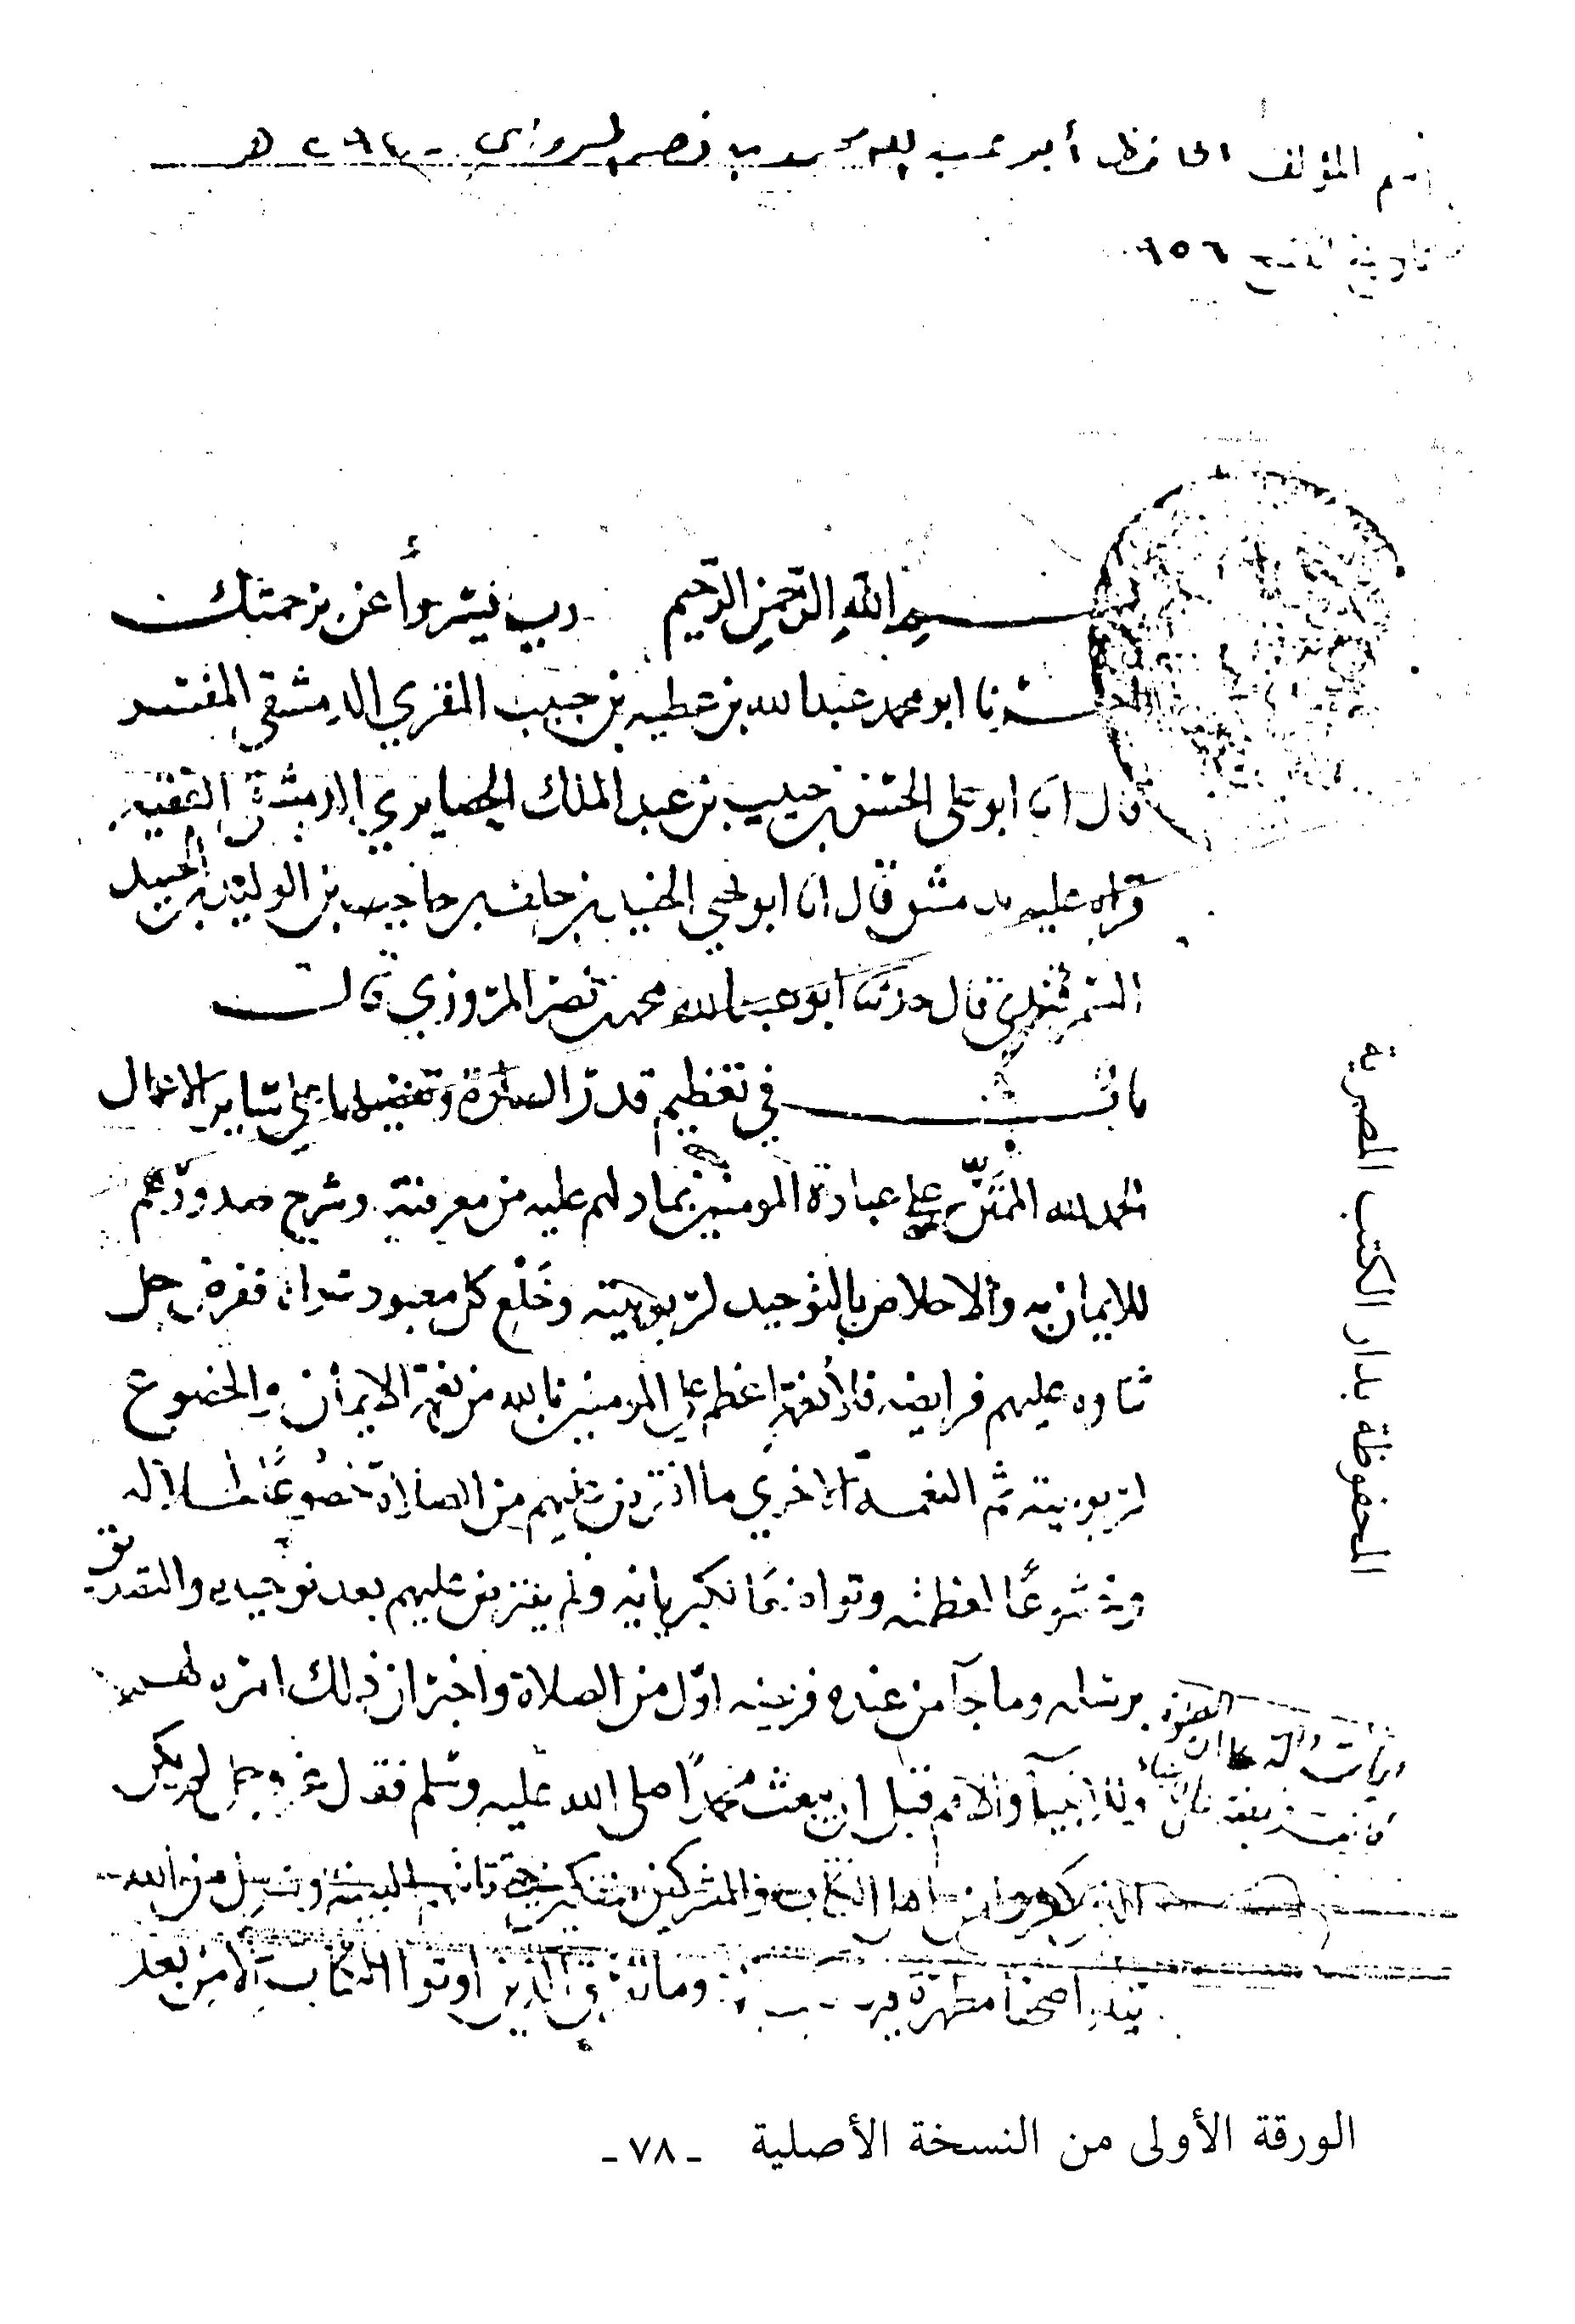 اسم المؤلف الحافظ أبو عبد الله محمد بن نصر المروزي - ٢٩٤ هـ
تاريخ النسخ ٩٥٦
بسم الله الرحمن الرحيم رب يسر وأعن برحمتك
ابو محمد عبد الله بن عطيه بن حبيب المقري الدمشقي المفسر
قال انا ابو علي الحسن بن حبيب بن عبد الملك الحصايري الدمشقي الفقيه
قراه عليه بدمشق قال انا ابو يحيى بن خلف بن حاجب بن الوليد بن
السمرقندي قال حدثنا ابو عبد الله محمد بن نصر المروزي قال
باب في تعظيم قدر الصلاة وتفضيلها على ساير الاعمال
الحمد لله الممتن على عباده المومنين بما دلهم عليه من معرفته وشرح صدورهم
للايمان به والاخلاص بالتوحيد لربوبيته وخلع كل معبود سواه ففرض جل
ثناوه عليهم فرايضه فلا نعمة اعظم على المومنين بالله من نعمة الايمان والخضوع
لربوبيته ثم النعمة الاخري ما افترض عليهم من الصلاة خضوعا لجلاله
وخشوعا لعظمته وتواضعا لكبريايه ولم يفترض عليهم بعد توحيده والتصديق
برسله وما جآ من عنده فريضه اول من الصلاة واخبر ان ذلك امره لهم
وللانبيآ والامم قبل ان يبعث محمدا صلى الله عليه وسلم فقال عز وجل لم يكن
الذين كفروا من اهل الكتاب والمشركين منفكين حتى تاتيهم البينة رسول من الله
يتلوا صحفا مطهرة وما تفرق الذين اوتوا الكتاب الا من بعد
المحفوظة بدار الكتب المصرية
الورقة الأولى من النسخة الأصلية - ٧٨ -